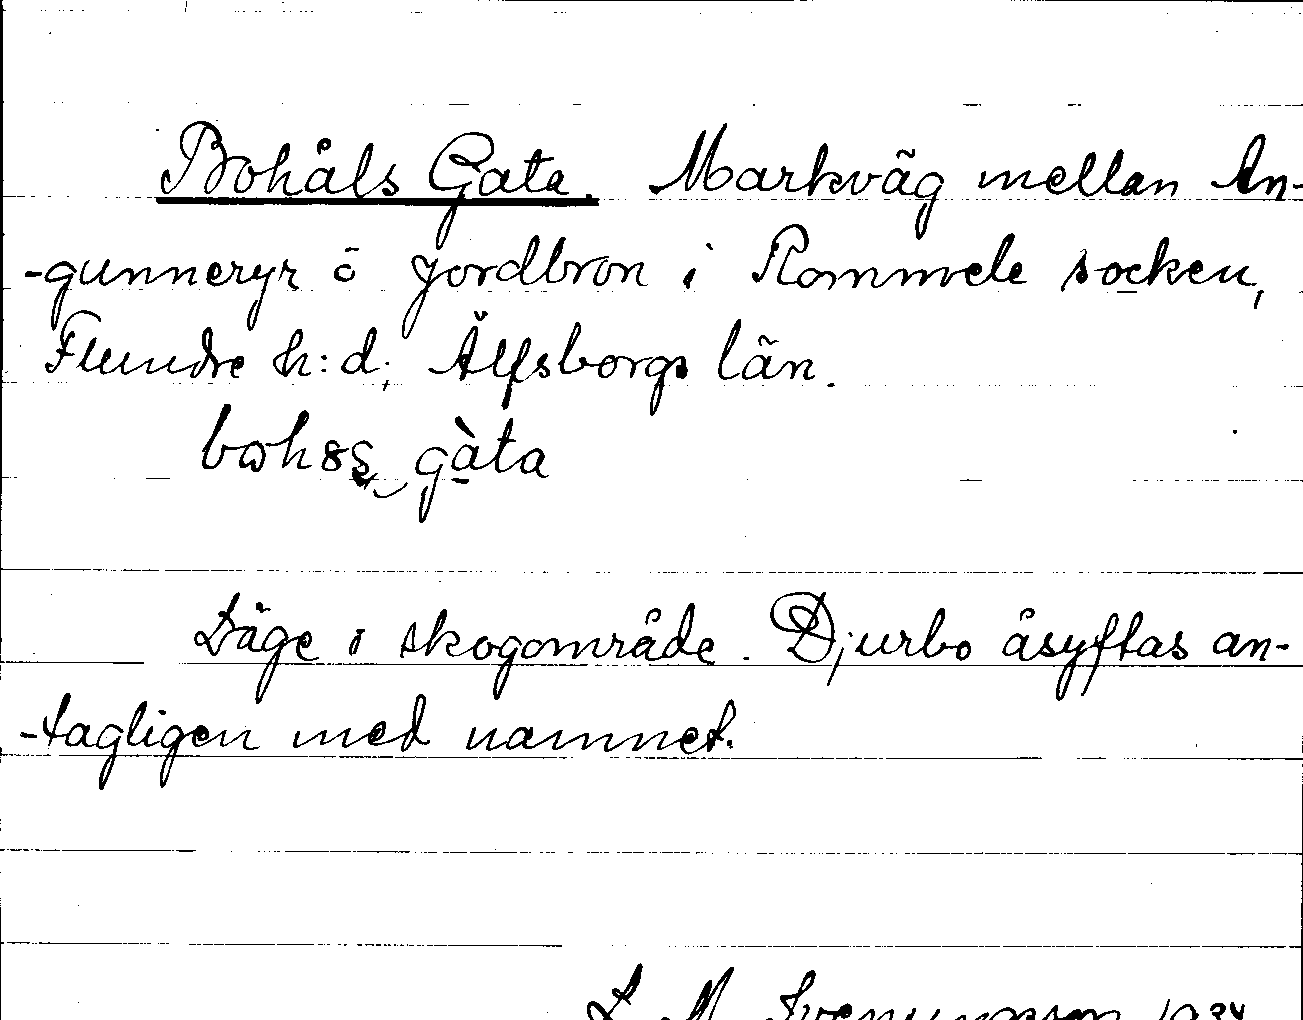 Bohåls Gata. Markväg mellan An-
-gunneryr ō Jordbron i Rommele socken,
Flundre h:d, Älfsborgs län.
gàta
Läge i skogområde. Djurbo åsyftas an-
-tagligen med namnet.
L M Svenungsson 1934